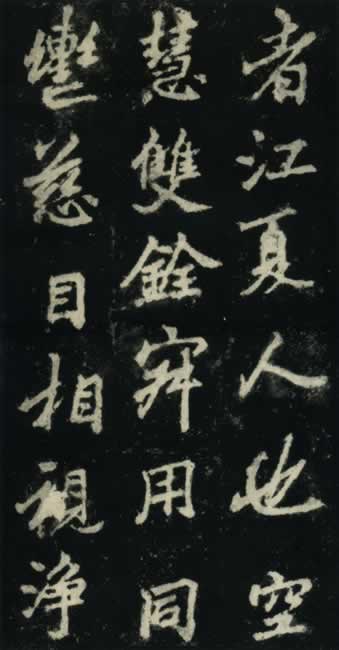 者江夏人也空
慧雙銓寂用同
轡慈目相視净